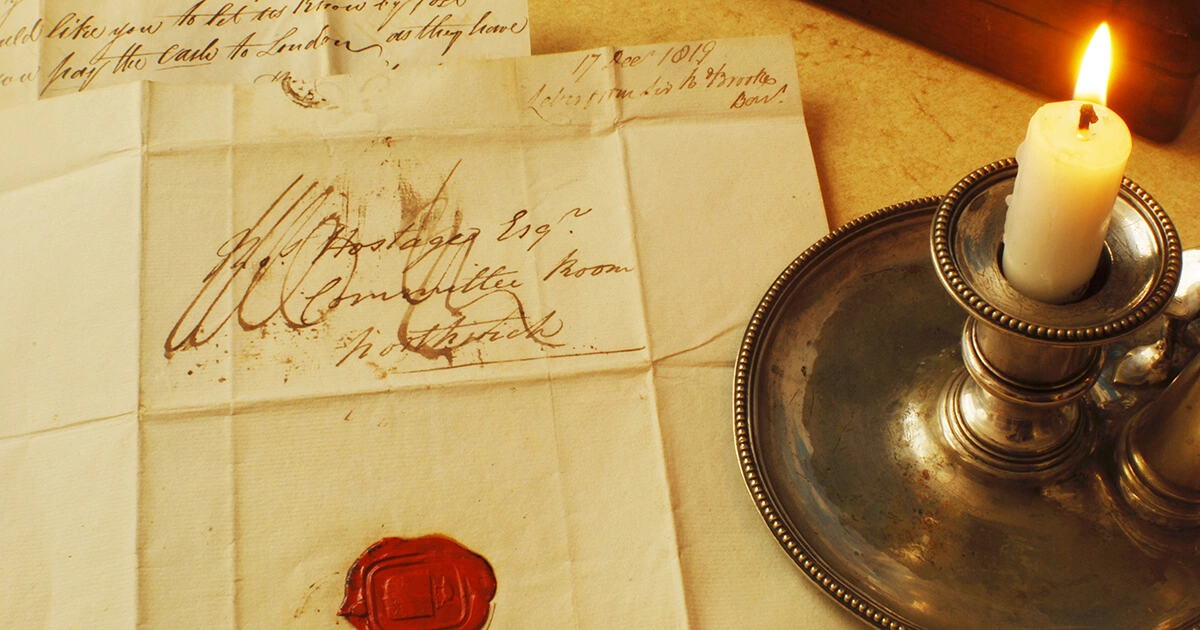 uld like you to let us know by post
you pay the cash to London as they have
17 Dec 1819
Letter from Sir R Brooke
Bart
Hostage Esqr.
Committee Room
Northwich